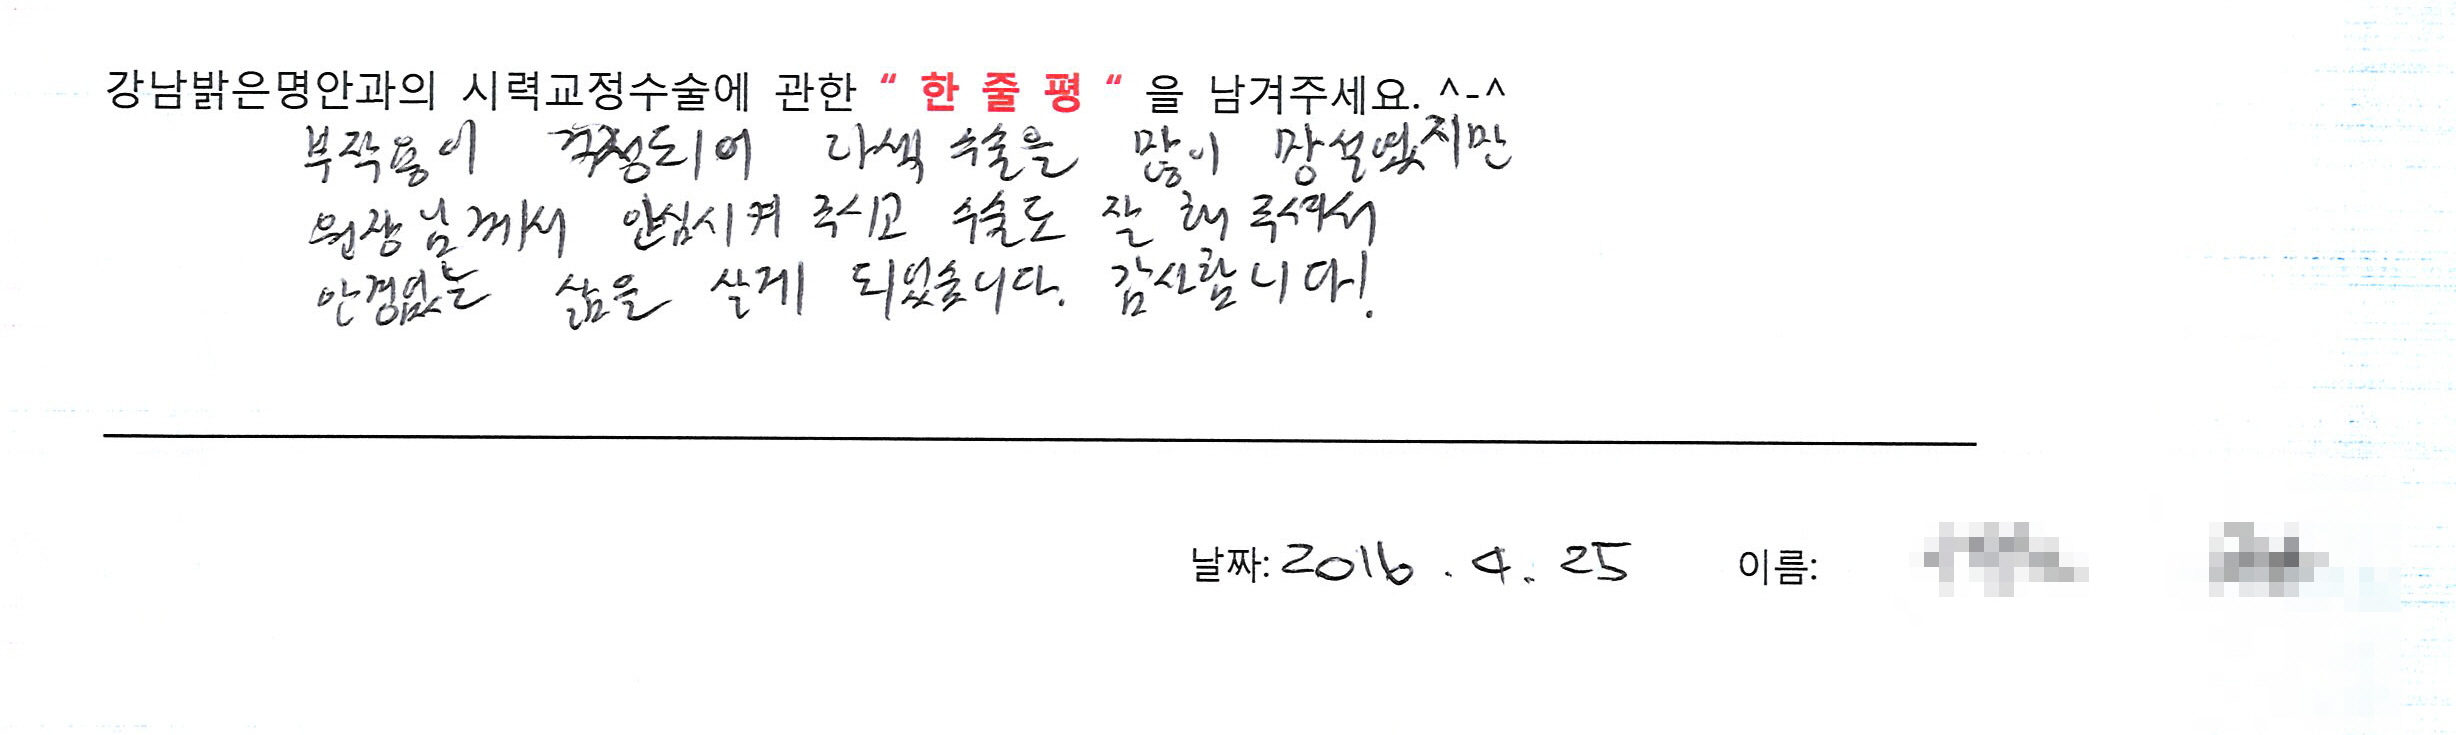 강남밝은명안과의 시력교정수술에 관한 “ 한 줄 평 “ 을 남겨주세요. ^-^
부작용이 걱정되어 라섹 수술을 많이 망설였지만
원장님께서 안심시켜 주시고 수술도 잘 해 주셔서
안경없는 삶을 살게 되었습니다. 감사합니다!
날짜: 2016 . 4 . 25 이름: